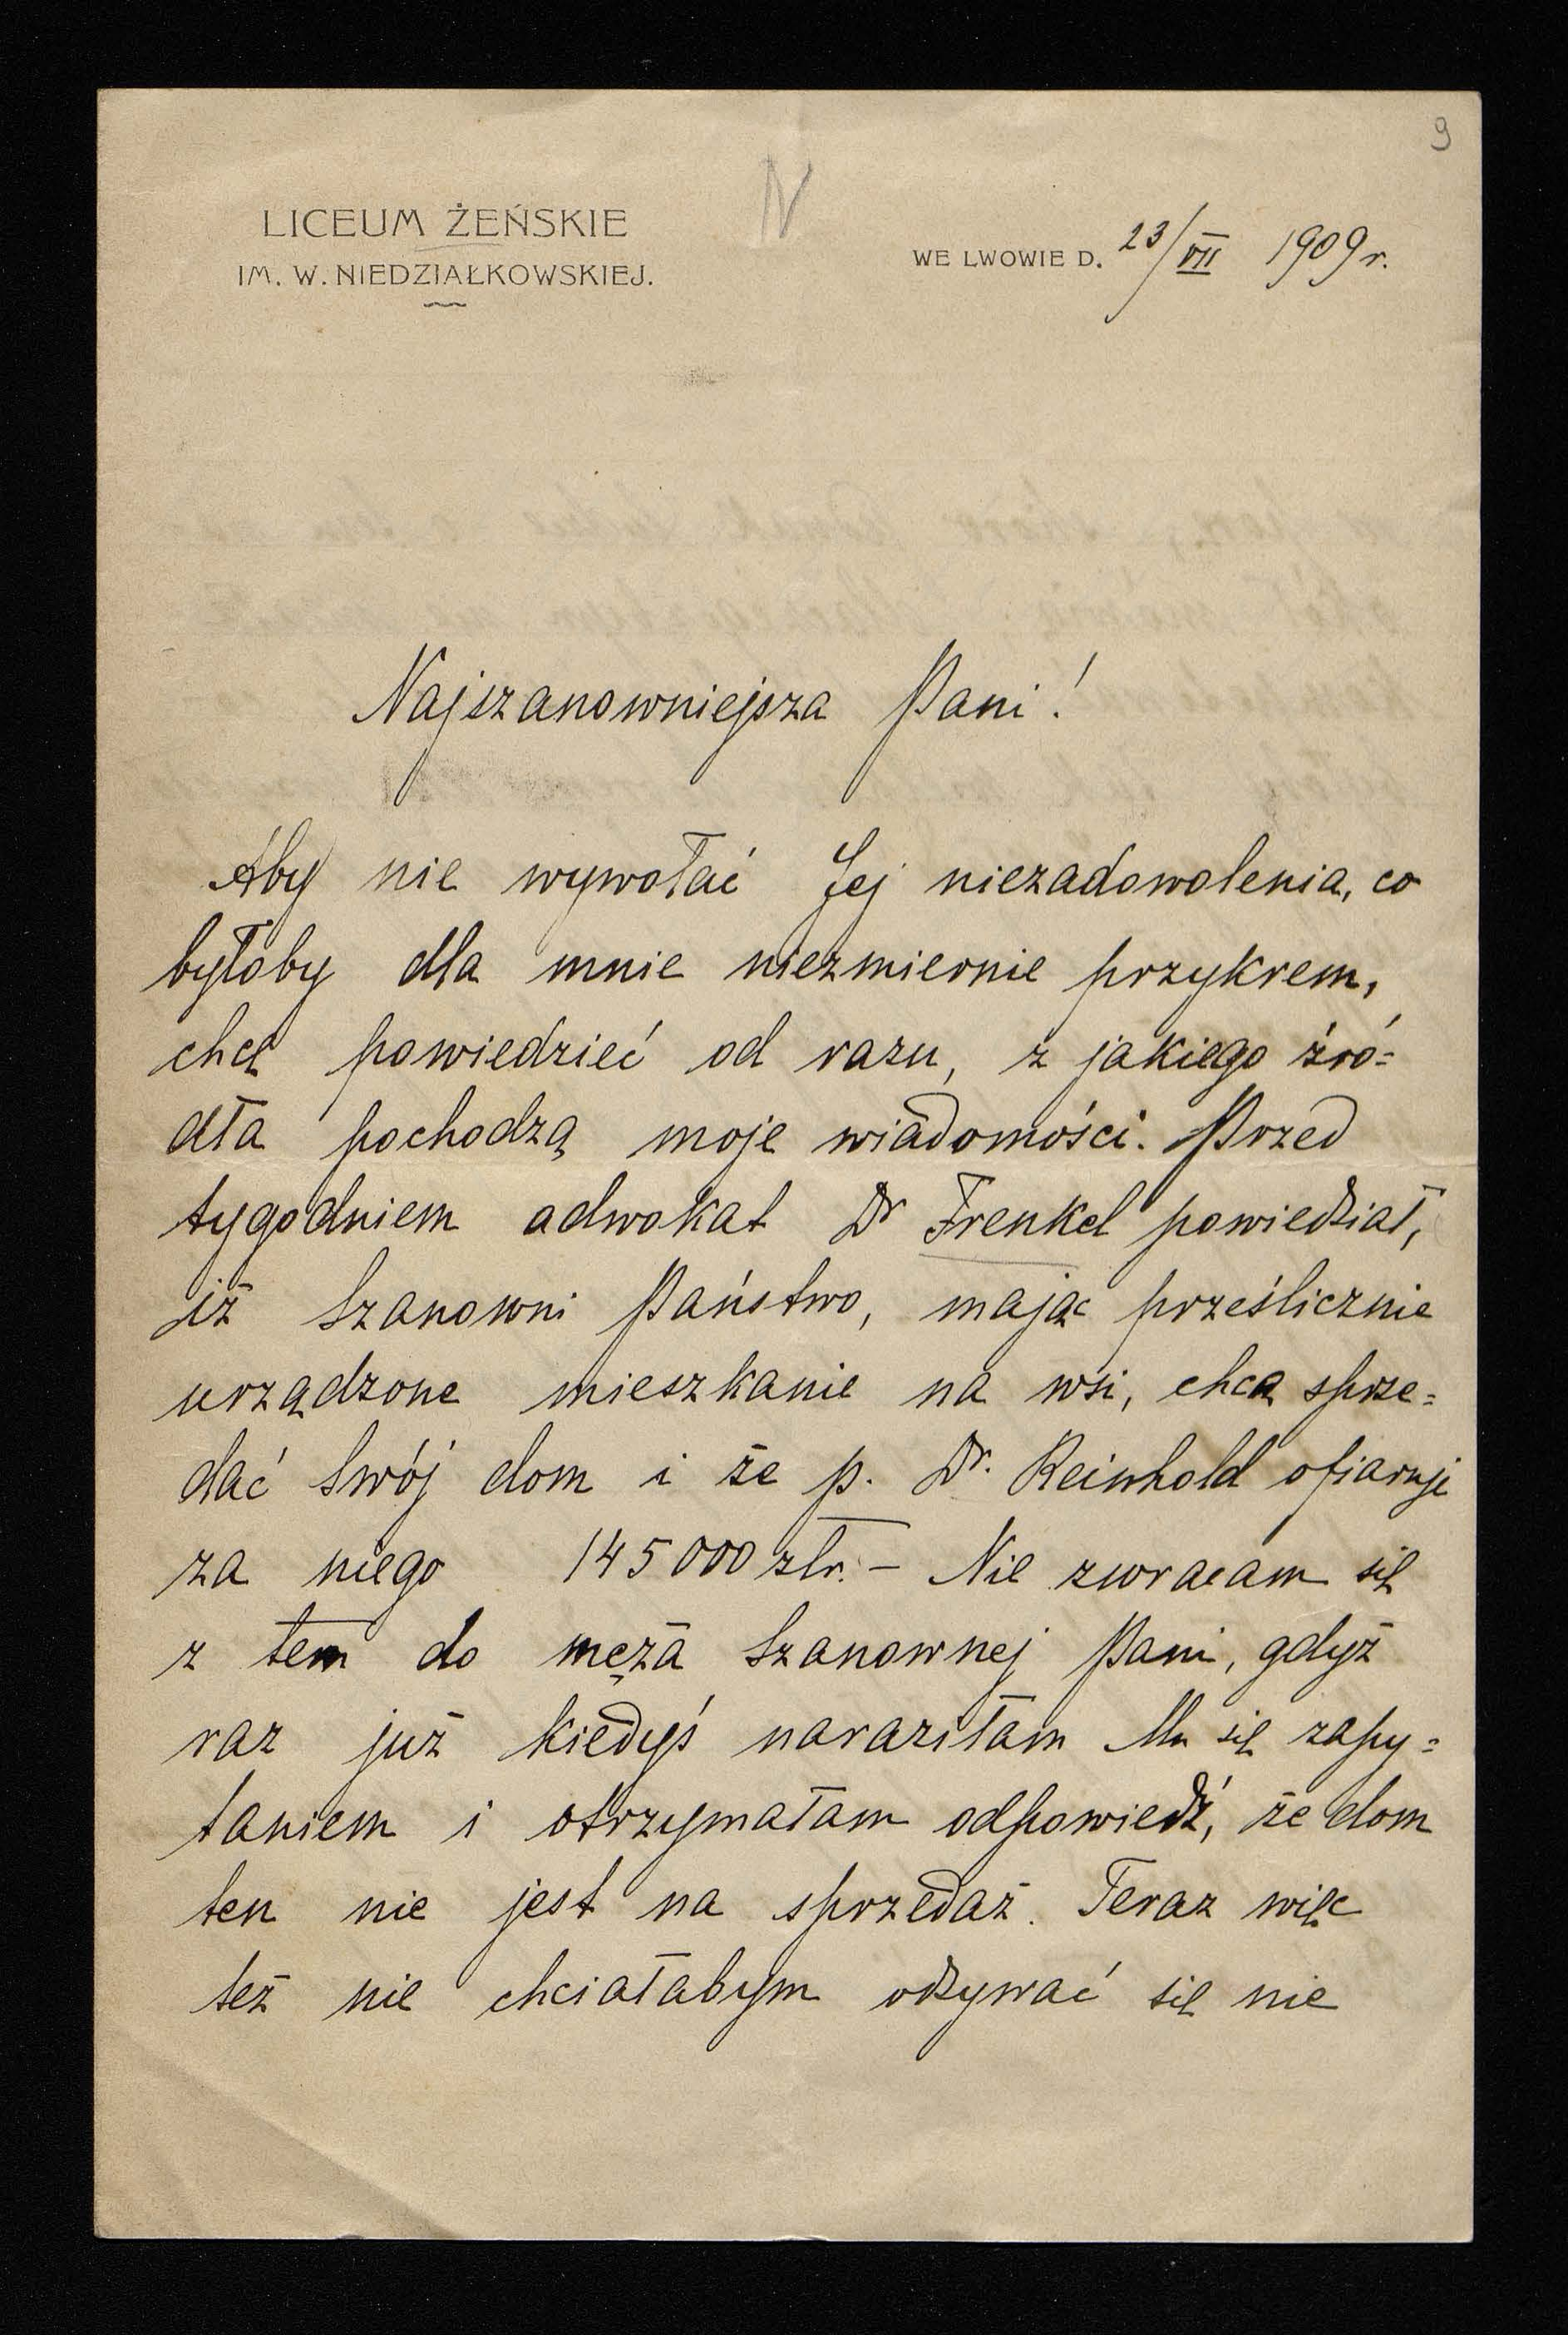 9
N
LICEUM ŻEŃSKIE
IM. W. NIEDZIAŁKOWSKIEJ.
WE LWOWIE D. 23/VII 1909 r.
Najszanowniejsza Pani!
Aby nie wywołać Jej niezadowolenia, co
byłoby dla mnie niezmiernie przykrem,
chcę powiedzieć od razu, z jakiego źró=
dła pochodzą moje wiadomości. Przed
tygodniem adwokat Dr Frenkel powiedział,
iż Szanowni Państwo, mając prześlicznie
urządzone mieszkanie na wsi, chcą sprze=
dać swój dom i że p. Dr. Reinhold ofiaruje
za niego 145000 złr. – Nie zwracam się
z tem do męża Szanownej Pani, gdyż
raz już kiedyś naraziłam Mu się zapy=
taniem i otrzymałam odpowiedź, że dom
ten nie jest na sprzedaż. Teraz więc
też nie chciałabym odzywać się nie